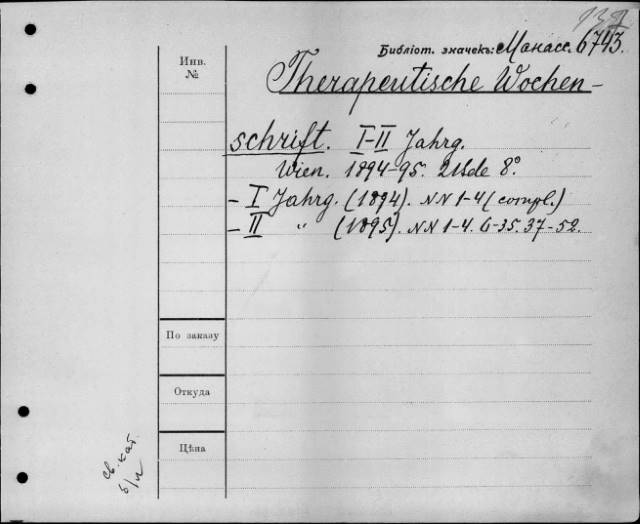 Библіот. значекъ: Манасс. 6743.
Инв.
№
Therapeutische Wochen-
schrift. I-II Jahrg.
Wien. 1894-95. 2 Bde 8°.
- I Jahrg. (1894). NN 1-4 (compl.)
- II " (1895). NN 1-4. 6-35. 37-52.
По заказу
Откуда
Цѣна
св. кат.
б/и